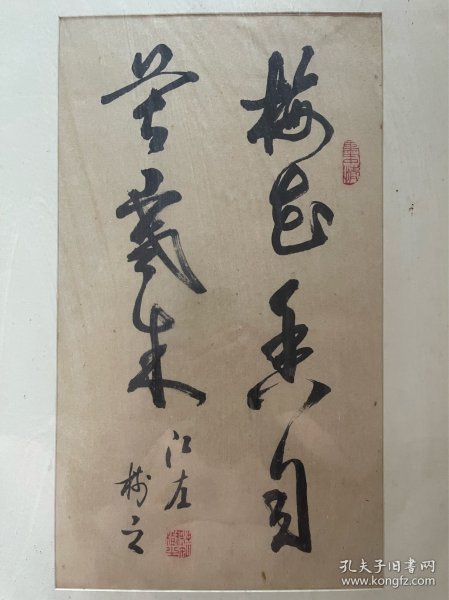 梅花香自
苦寒来
江左
树之
孔夫子旧书网
www.kongfz.com